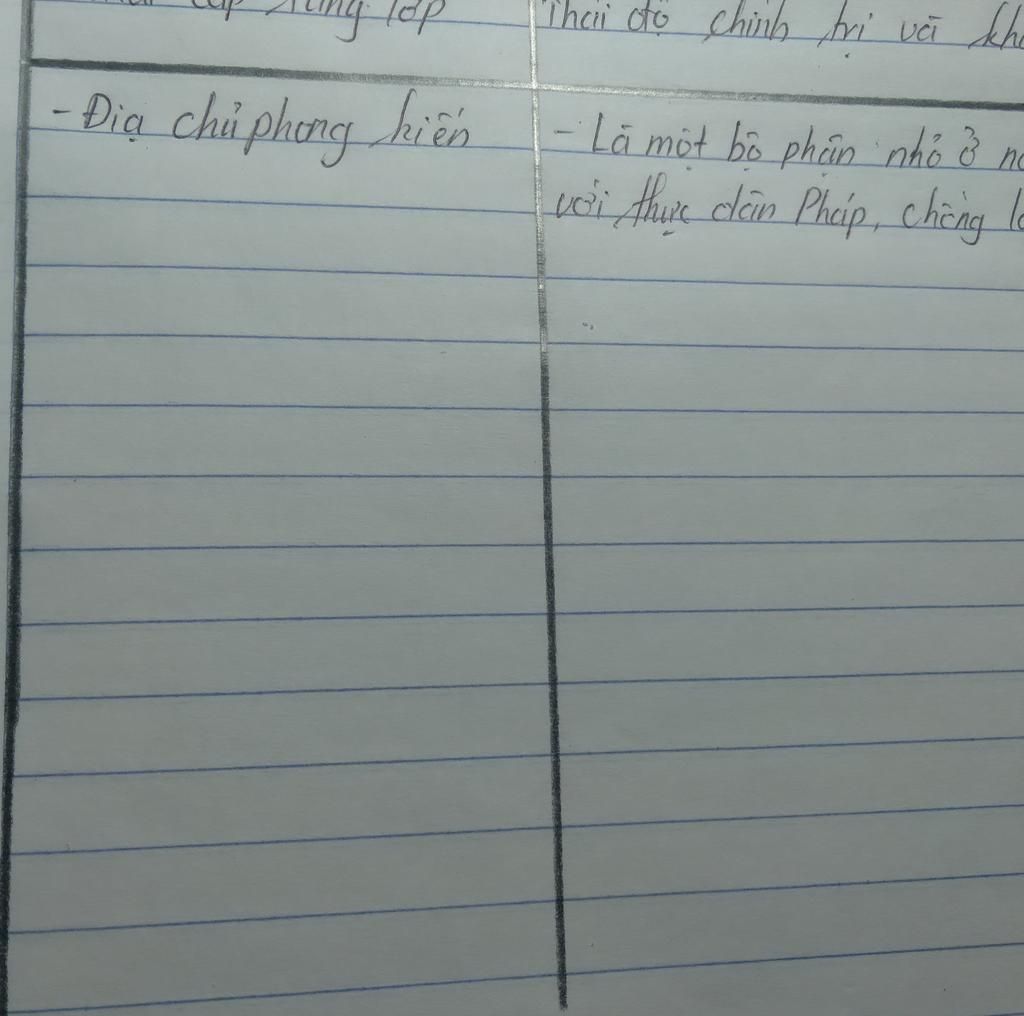 cấp tầng lớp
Thái độ chính trị và kh
- Địa chủ phong kiến
- Là một bộ phận nhỏ ở
với thực dân Pháp, chống